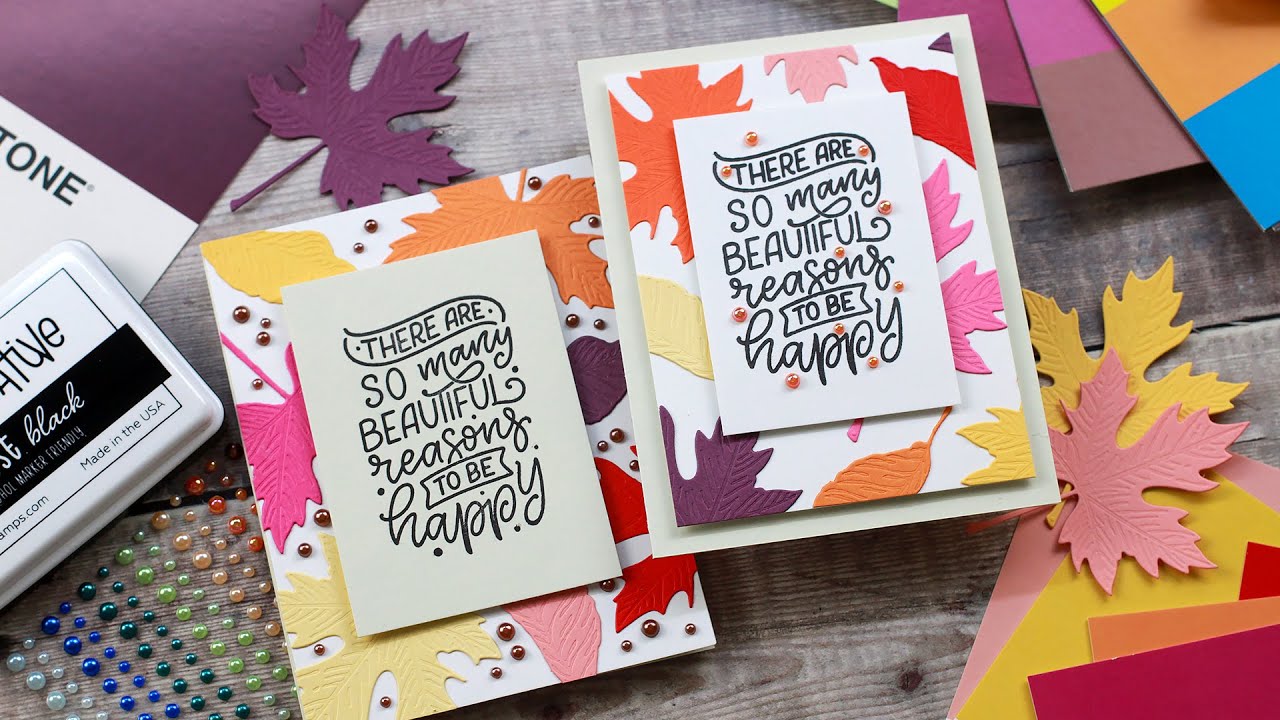 TONE®
ATIVE
SE black
HOL MARKER FRIENDLY
Made in the USA
amps.com
THERE ARE
SO many
BEAUTIFUL
reasons
TO BE
happy
THERE ARE
SO many
BEAUTIFUL
reasons
TO BE
happy